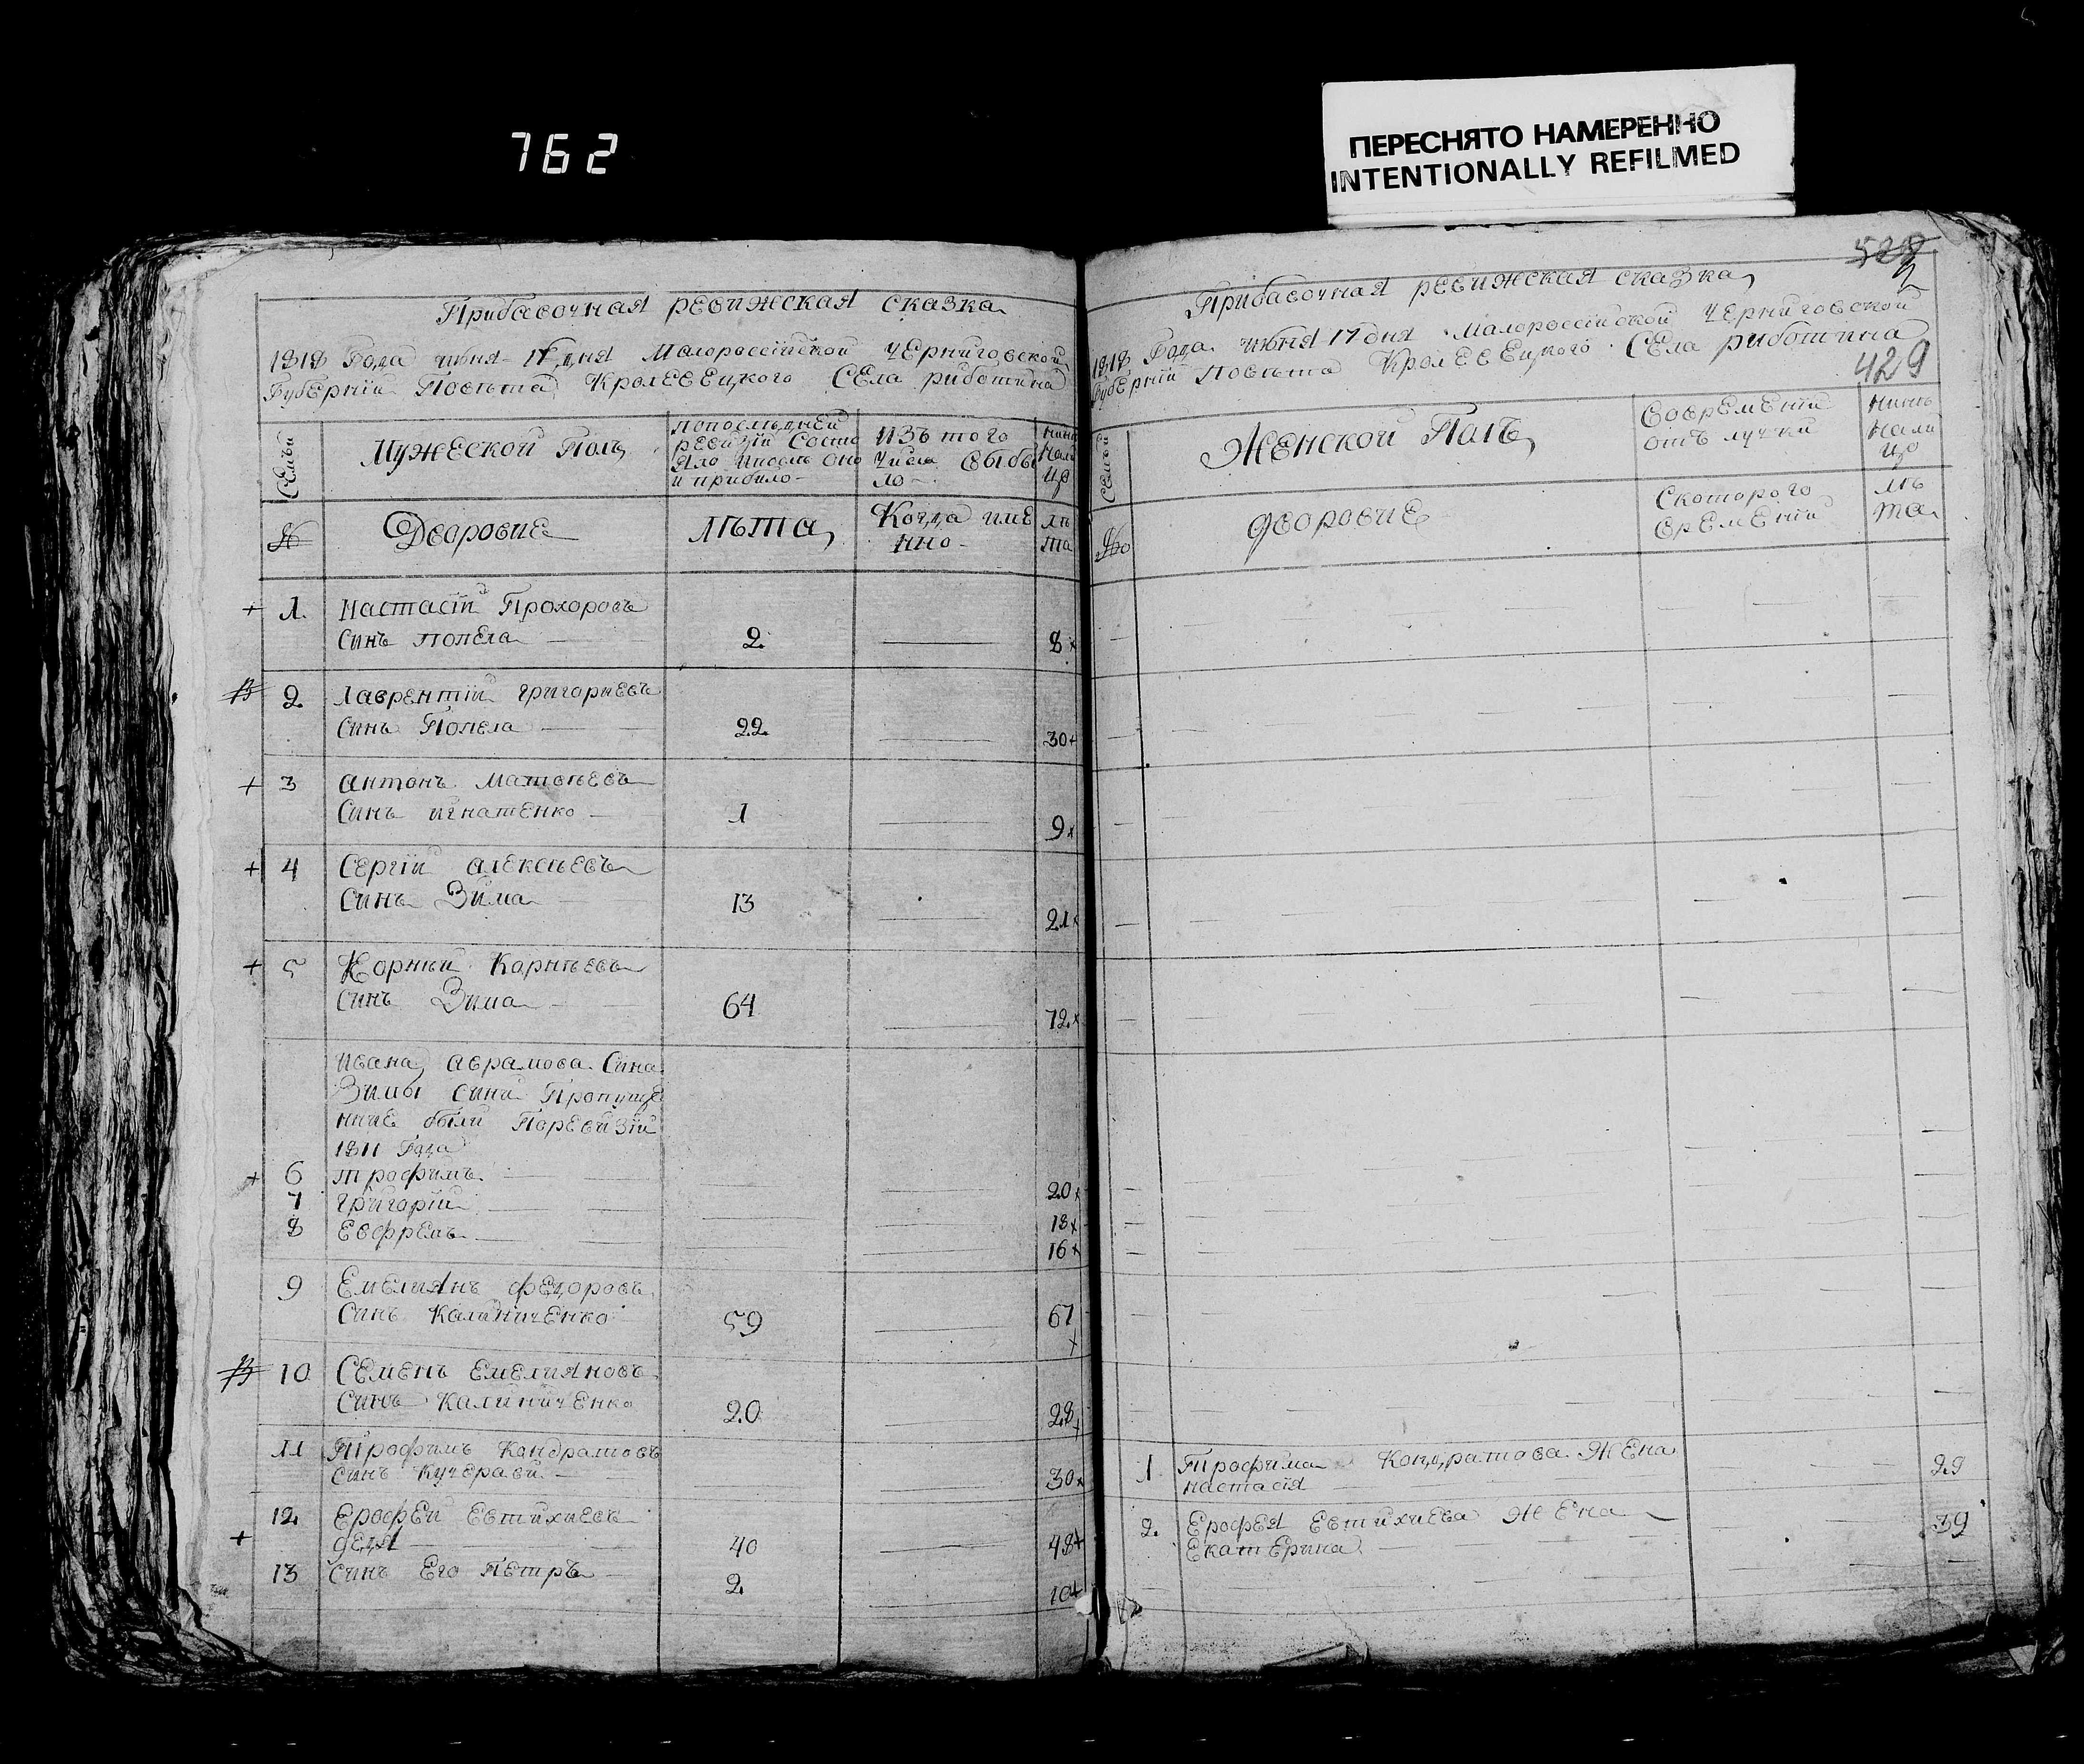 762
ПЕРЕСНЯТО НАМЕРЕННО
INTENTIONALLY REFILMED
Прибавочная ревижская сказка
1818 Года июня 17 дня Малороссійской Черниговской
Губерніи Повѣта Кролевецкого Села риботина
Семьи
Мужеской Полъ
попослѣдней
ревизіи Состо
яло число оно
и прибило
изъ того
числа выбы
ло
нине
нали
цо
№
Дворовие
лѣта
Когда име
нно
лѣ
та
+ 1. Настасій Прохоровъ
Синъ попела 2. 8 х
2. Лаврентій григориевъ
Синъ Попела 22. 30 +
+ 3 антонъ Матвѣевъ
Синъ игнатенко 1 9 х
+ 4 Сергій алексѣевъ
Синъ Зима 13 21 х
+ 5 Корнѣй Корнѣевъ
Синъ Зима 64 72. х
ивана аврамова Сина
Зимы сини Пропуще
ние были Поревизіи
1811 Года
+ 6 трофимъ 20 х
7 григорій 18 х
8 Евфремъ 16 х
9 Емелиянъ федоровъ
Синъ Калиниченко 59 67 х
10 Семенъ Емелияновъ
Синъ Калиниченко 20 28 х
11 Трофимъ Кондратовъ
Синъ Кучерави 30 х
12. Ерофей Евтихиевъ
+ дедя 40 48 +
13 Синъ Его Петръ 2. 10 +
529
Прибавочная ревижская сказка
1818 Года июня 17 дня Малороссійской Черниговской
Губерніи Повѣта Кролевецкого Села риботина
429
Семьи
Женской Полъ
Вовремени
отъ лучки
нинѣ
нали
цо
№
дворовие
Скоторого
времени
лѣ
та
1 Трофима Кондратова Жена
настасія 29
2. Ерофея Евтихиева Жена
Екатерина 39